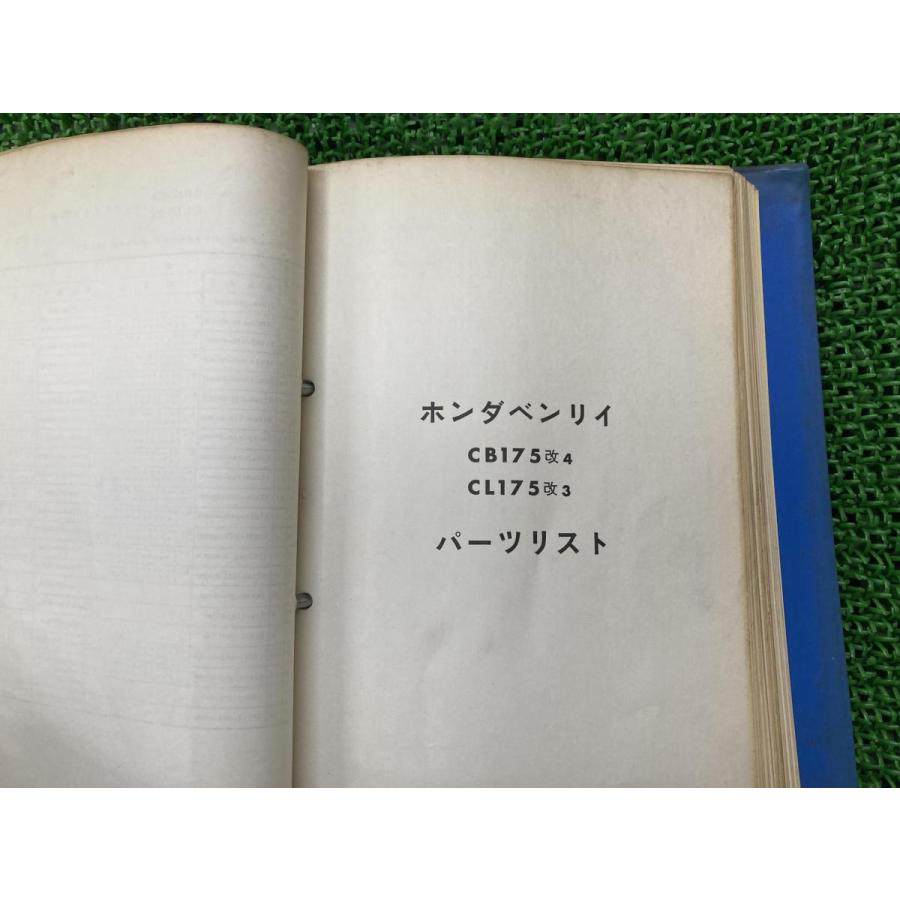 ホンダベンリイ
CB175改4
CL175改3
パーツリスト